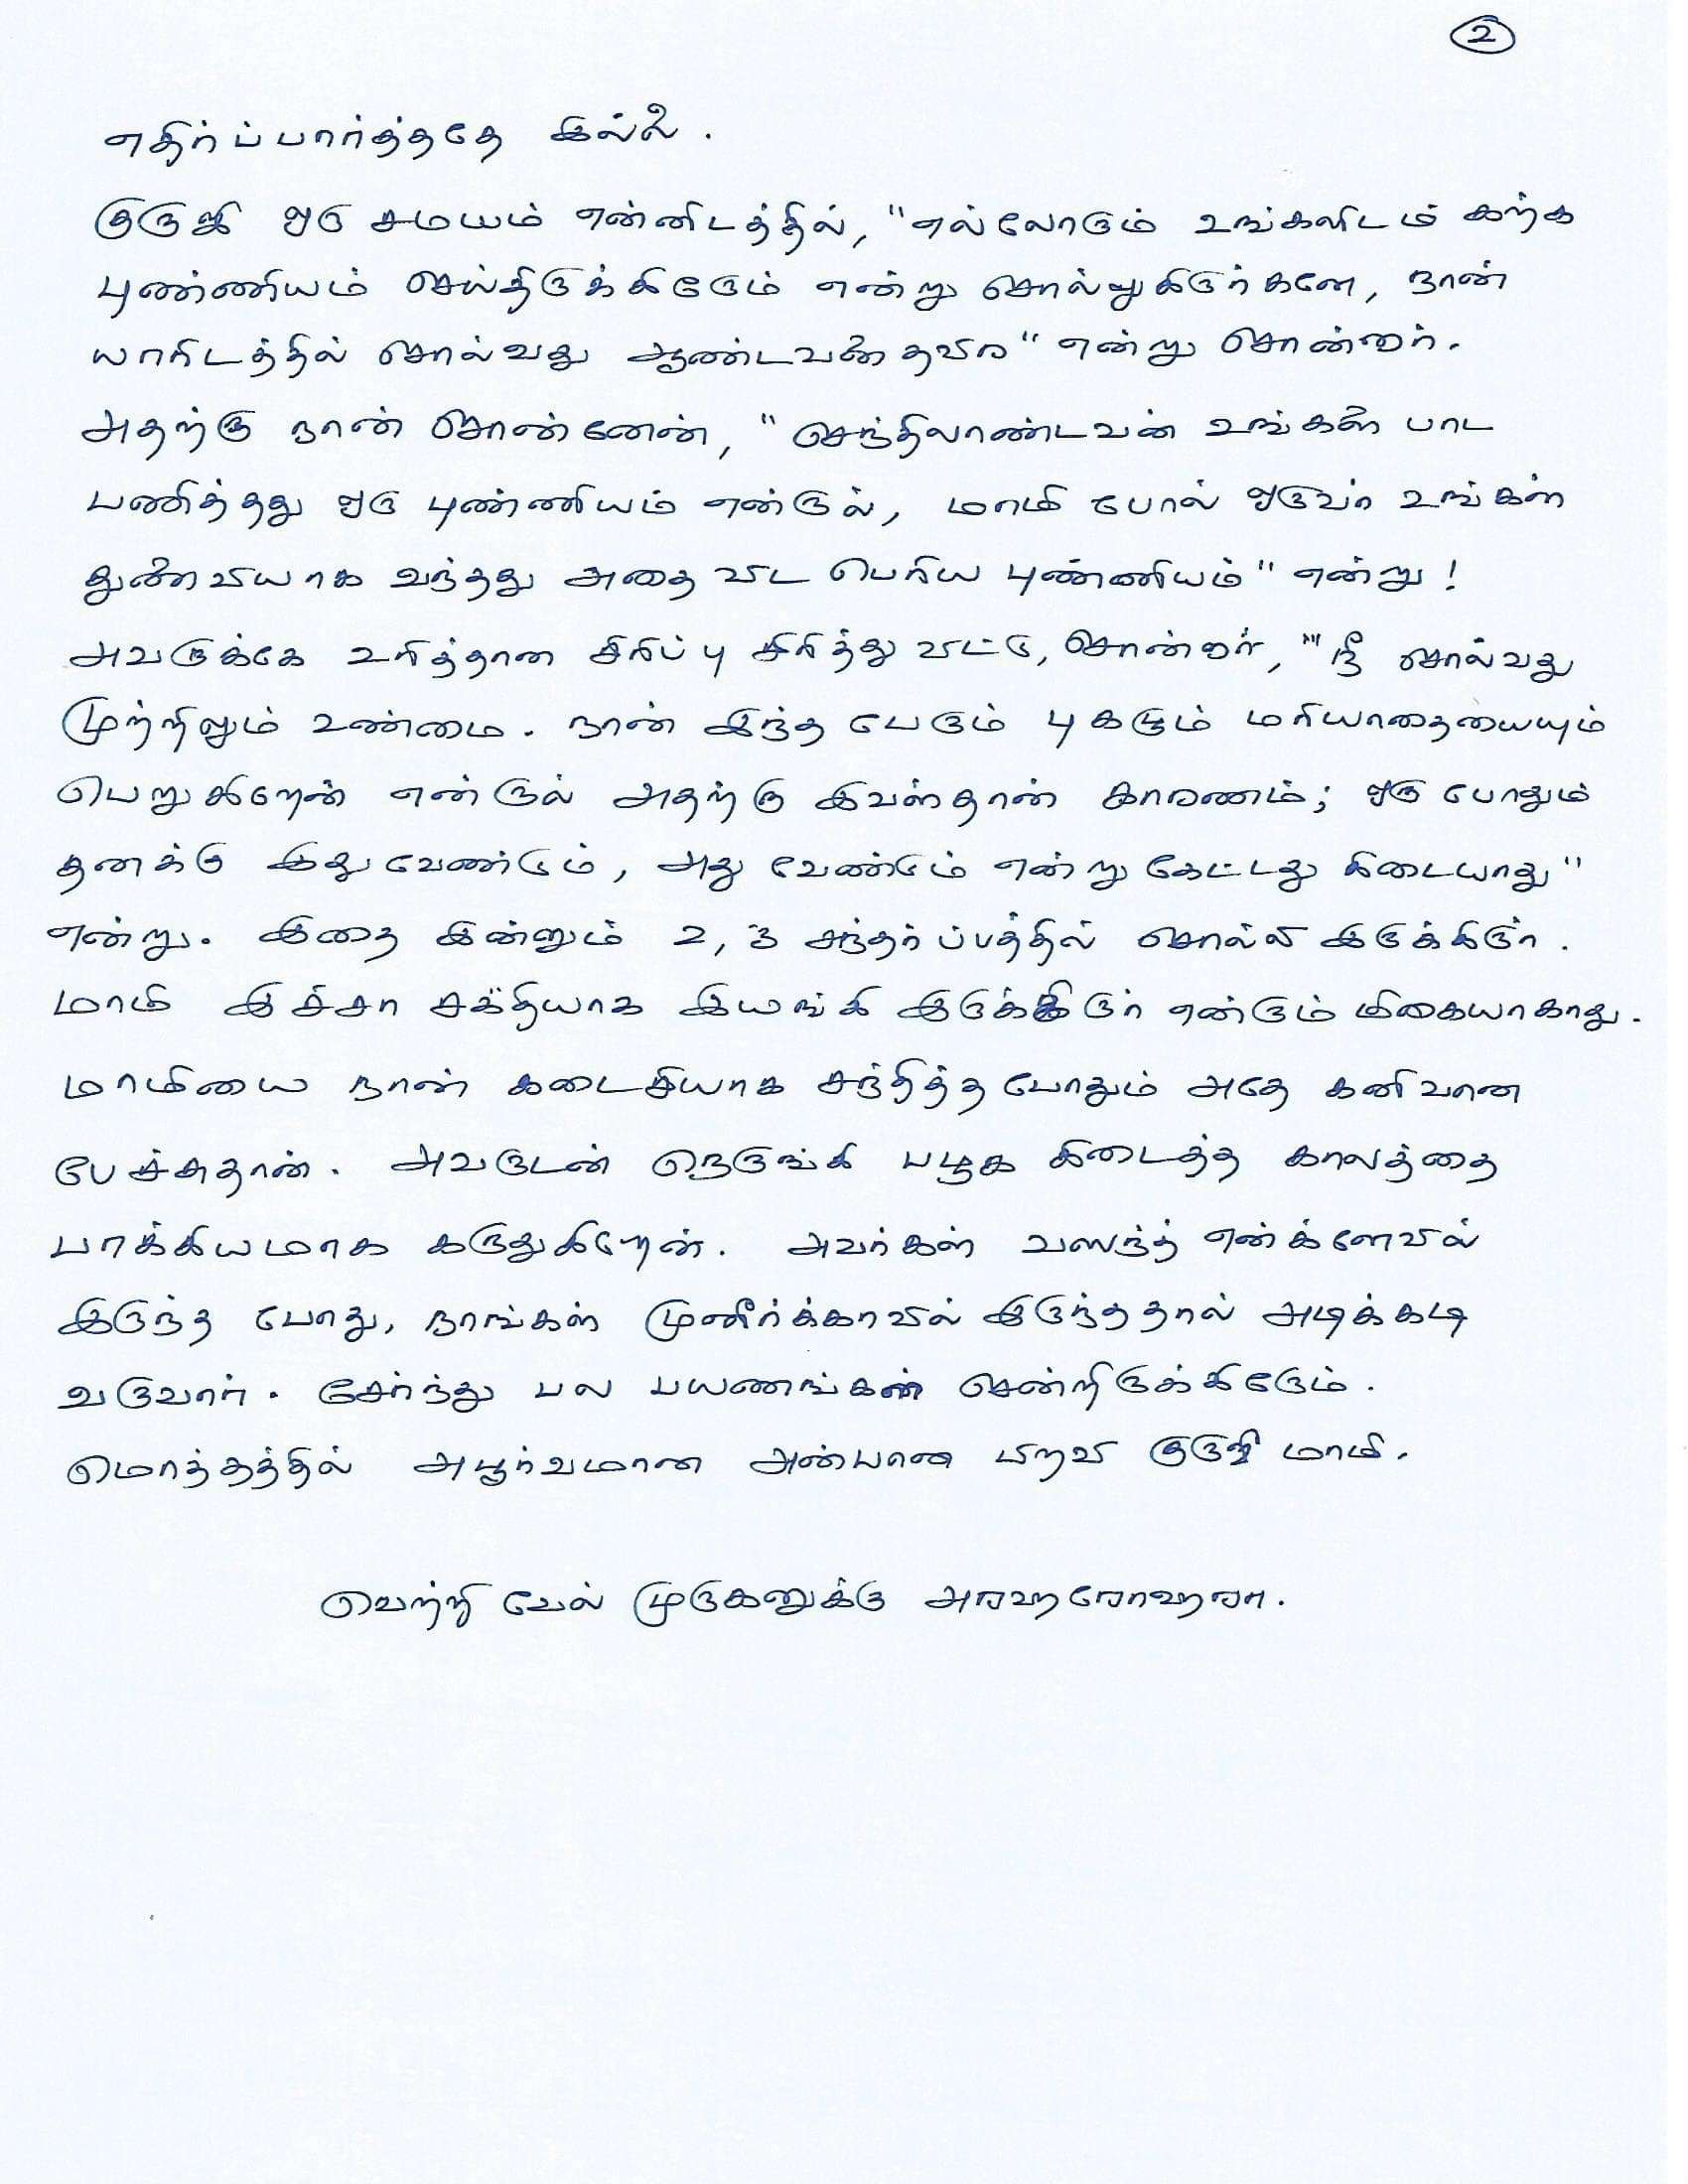 2
எதிர்ப்பார்த்ததே இல்லை.
குருஜி ஒரு சமயம் என்னிடத்தில், "எல்லோரும் உங்களிடம் கற்க
புண்ணியம் செய்திருக்கிறோம் என்று சொல்றுகிறார்களே, நான்
யாரிடத்தில் சொல்வது ஆண்டவனைதவிர" என்று சொன்னார்.
அதற்கு நான் சொன்னேன், "செந்திலாண்டவன் உங்களை பாட
பணித்தது ஒரு புண்ணியம் என்றால், மாமி போல் ஒருவர் உங்கள்
துணைவியாக வந்தது அதை விட பெரிய புண்ணியம்" என்று!
அவருக்கே உரித்தான சிரிப்பு சிரித்து விட்டு, சொன்னார், "நீ சொல்வது
முற்றிலும் உண்மை. நான் இந்த பேரும் புகழும் மரியாதையையும்
பெறுகிறேன் என்றால் அதற்கு இவள்தான் காரணம்; ஒரு போதும்
தனக்கு இது வேண்டும், அது வேண்டும் என்று கேட்டது கிடையாது"
என்று. இதை இன்னும் 2, 3 சந்தர்ப்பத்தில் சொல்லி இருக்கிறார்.
மாமி இச்சா சக்தியாக இயங்கி இருக்கிறார் என்றும் மிகையாகாது.
மாமியை நான் கடைசியாக சந்தித்த போதும் அதே கனிவான
பேச்சுதான். அவருடன் நெருங்கி பழக கிடைத்த காலத்தை
பாக்கியமாக கருதுகிறேன். அவர்கள் வஸந்த் என்க்ளேவில்
இருந்த போது, நாங்கள் முனீர்க்காவில் இருந்ததால் அடிக்கடி
வருவார். சேர்ந்து பல பயணங்கள் சென்றிருக்கிறோம்.
மொத்தத்தில் அபூர்வமான அன்பான பிறவி குருஜி மாமி.
வெற்றி வேல் முருகனுக்கு அரஹரோஹரா.